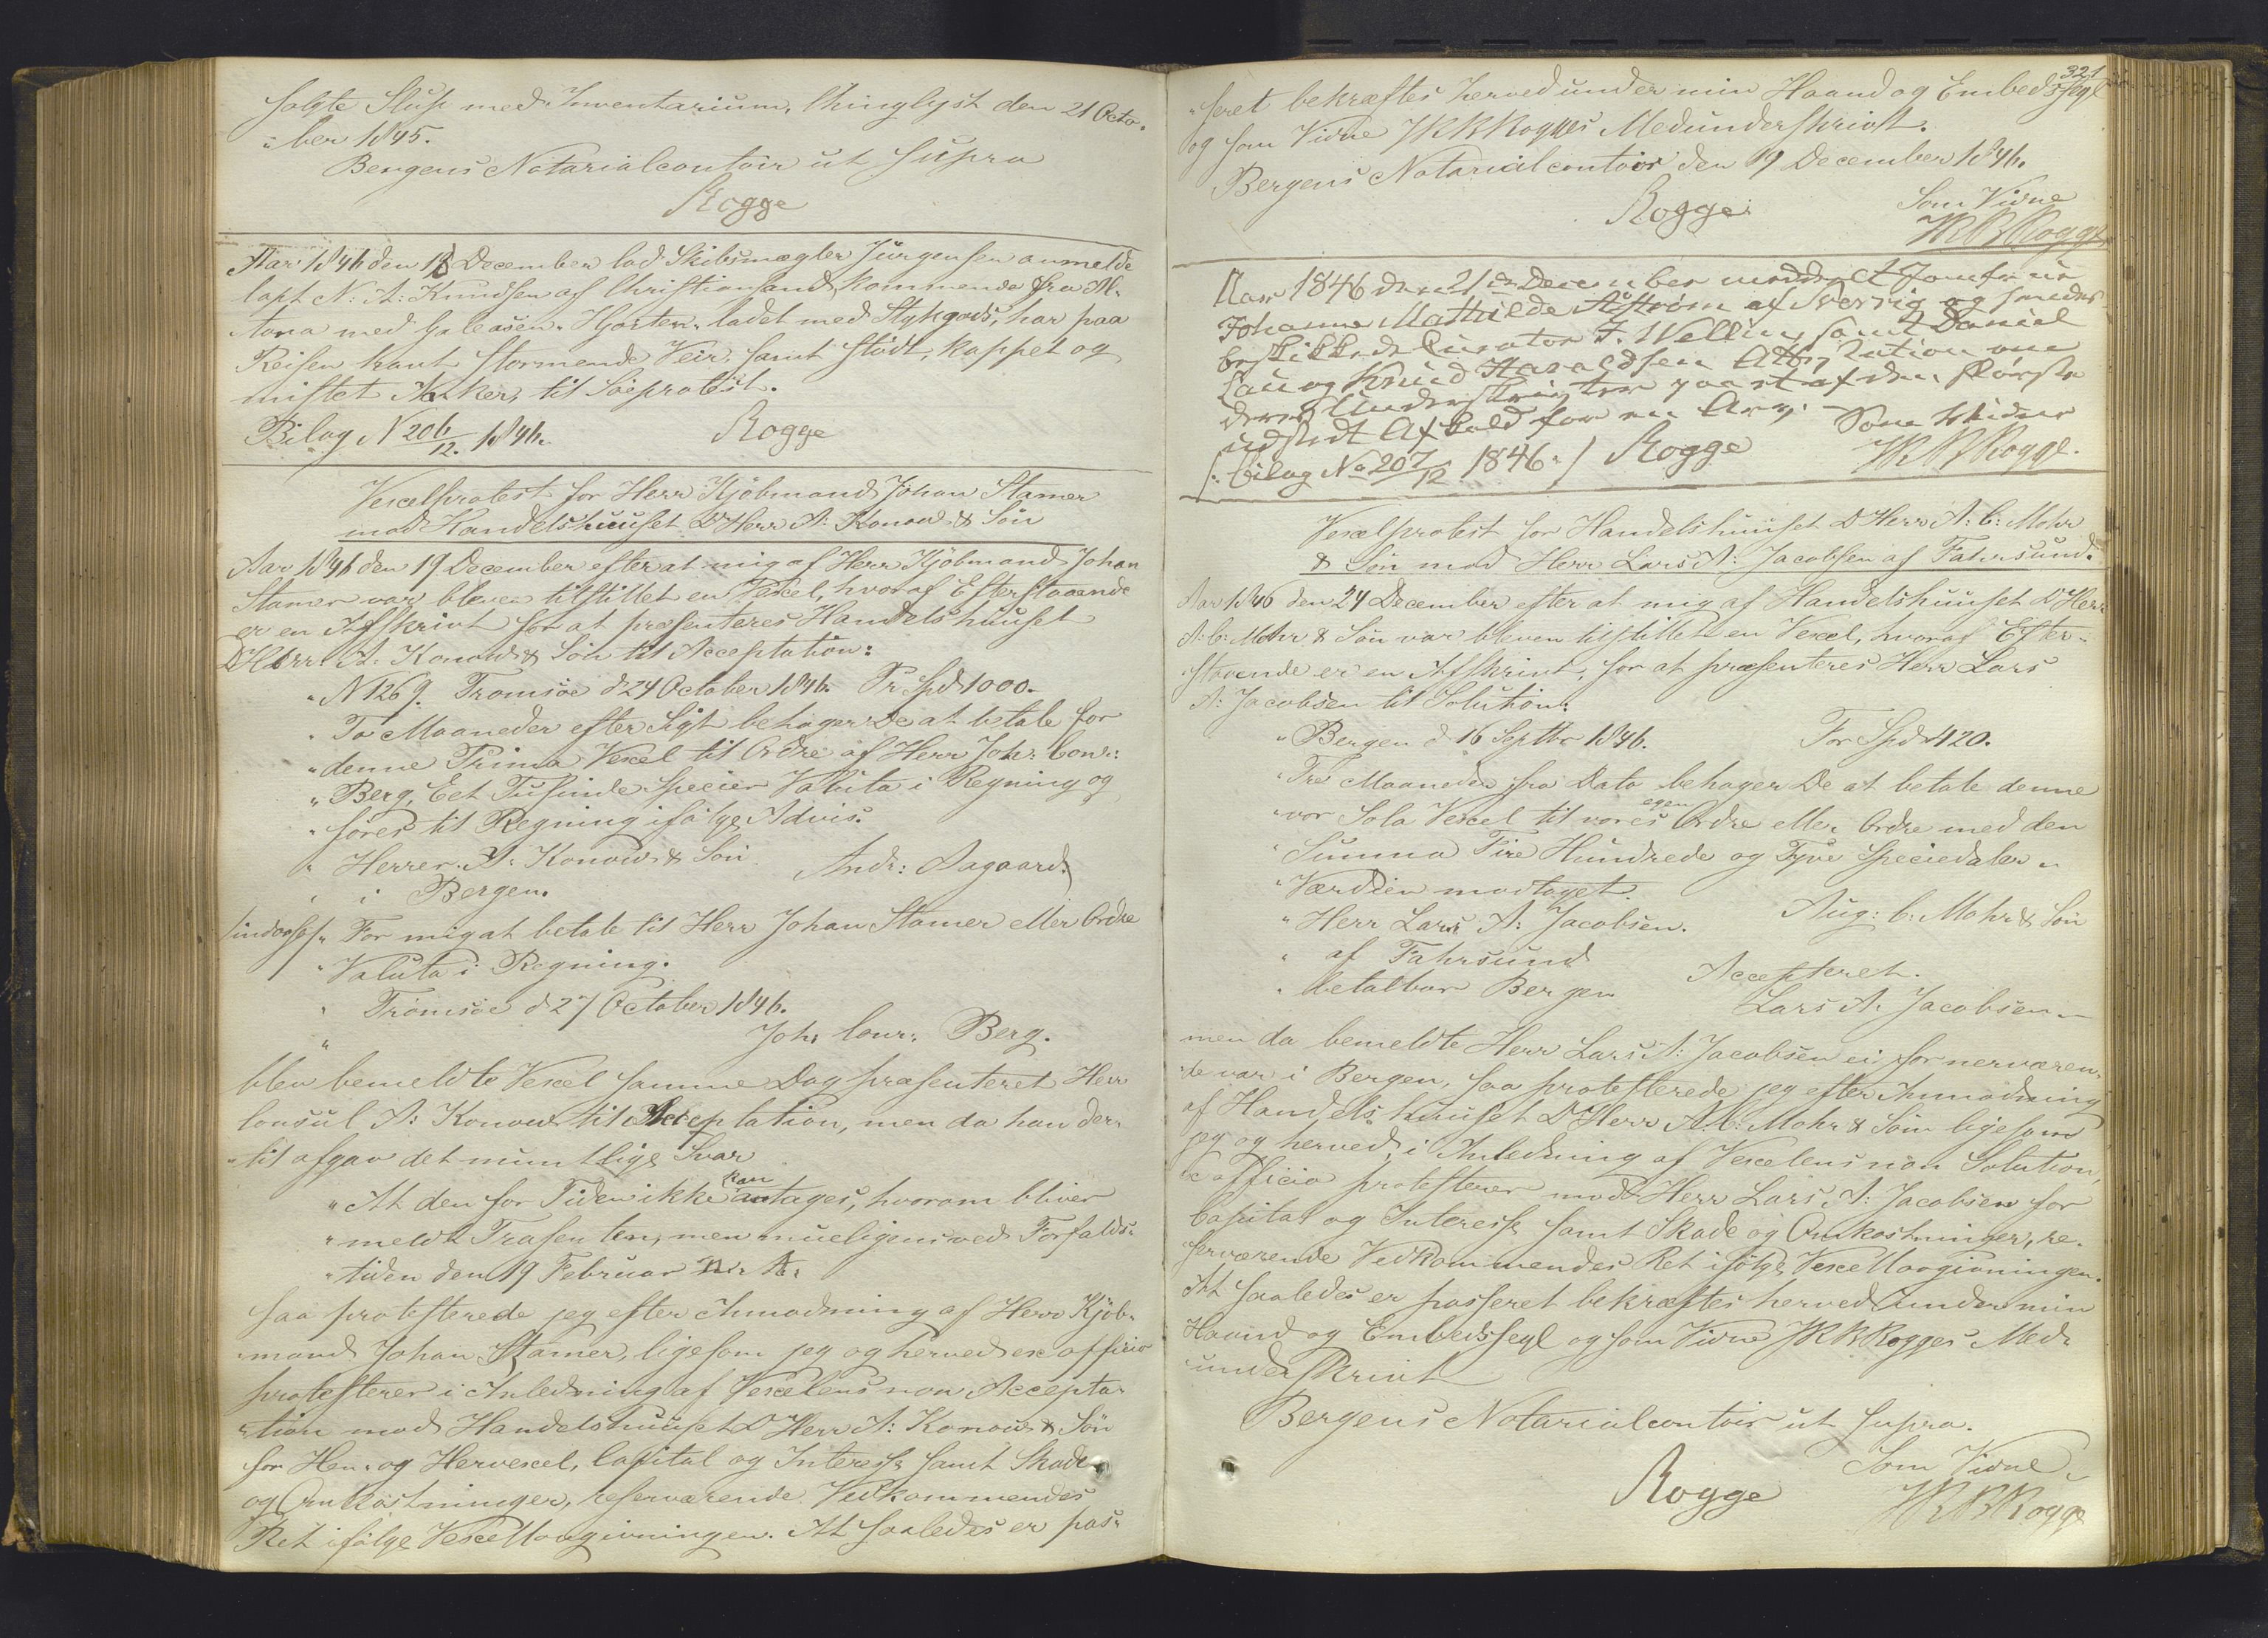 solgte Slup med Inventarium, thinglyst den 21 Octo-
"ber 1845.
Bergens Notarialcontoir ut supra
Rogge
Aar 1846 den 18 December lod Skibsmægler Jürgensen anmelde
Capt N: A: Knudsen af Christiansand, kommende fra Al-
tona med Galeasen "Hjorten" ladet med Stykgods, har paa
Reisen havt stormende Veir, samt stödt, kappet og
mistet Anker, til Söeprotest.
Bilag N 206/12. 1846. Rogge
Vexelprotest for Herr Kjöbmand Johan Stamer
mod Handelshuuset D'Herr A: Konow & Sön
Aar 1846 den 19 December efter at mig af Herr Kjöbmand Johan
Stamer var bleven tilstillet en Vexel, hvoraf Efterstaaende
er en Afskrivt for at præsenteres Handelshuuset
D'Herr A: Konow & Sön til Acceptation:
"N 1269. Tromsöe d 24 October 1846. Pr Spd 1000.
"To Maaneder efter Sigt behager De at betale for
"denne Prima Vexel til Ordre af Herr Joh: Conr:
"Berg, Eet Tusinde Specier Valuta i Regning og
"föres til Regning ifölge Advis.
"Herrer A: Konow & Sön Andr: Aagaard.
" i Bergen.
indoss: "For mig at betale til Herr Johan Stamer eller Ordre
"Valuta i Regning.
" Tromsöe d 27 October 1846.
" Joh: Conr: Berg.
blev bemeldte Vexel samme Dag præsenteret Herr
Consul A: Konow til Acceptation, men da han der-
"til afgav det mundtlige Svar
kan
"At den for Tiden ikke antages, hvorom bliver
"meldt Trasenten, men mueligens ved Forfalds-
"tiden den 19 Februar n: A:
saa protesterede jeg efter Anmodning af Herr Kjöb-
"mand Johan Stamer, ligesom jeg og herved ex officio
protesterer i Anledning af Vexelens non Accepta-
"tion mod Handelshuuset D'Herr A: Konow & Sön
for Hen- og Hervexel, Capital og Interesse samt Skade
og Omkostninger, reserverende Vedkommendes
Ret ifölge Vexellovgivningen. At saaledes er pas-
321
"seret bekræftes herved under min Haand og Embedssegl
og som Vidne JKBRogges Medunderskrivt.
Bergens Notarialcontoir den 19 December 1846.
Rogge Som Vidne
JKBRogge
Aar 1846 den 21de December meddeelt Jomfrue
Johanne Mathilde Aström af Sverrig og hendes
beskikkede Curator F. Wellin, samt Daniel
Lau og Knud Haraldsen Attestation om
deres Underskrifter paa et af den förste
udstedt Afkald for en Arv.
/: bilag No 207/12 1846:/ Rogge Som Vidne
JKBRogge.
Vexelprotest for Handelshuuset D'Herr A: C: Mohr
& Sön mod Herr Lars A: Jacobsen af Fahrsund.
Aar 1846 den 24 December efter at mig af Handelshuuset D'Herr
A: C: Mohr & Sön var bleven tilstillet en Vexel, hvoraf Efter-
"staaende er en Afskrivt, for at præsenteres Herr Lars
A: Jacobsen til Solution:
"Bergen d 16 Septbr 1846. For Spd 420.
"Tre Maaneder fra Dato behager De at betale denne
egen
"vor Sola Vexel til vores Ordre eller Ordre med den
"Summa Fire Hundrede og Tyve Speciedaler "
"Værdien modtaget.
"Herr Lars A: Jacobsen. Aug: C: Mohr & Sön
" af Fahrsund
" betalbar Bergen Accepteret.
Lars A. Jacobsen.
men da bemeldte Herr Lars A: Jacobsen ei for nerværen-
"de var i Bergen, saa protesterede jeg efter Anmodning
af Handelshuuset D'Herr A: C: Mohr & Sön ligesom
jeg og herved, i Anledning af Vexelens non Solution,
ex officio protesterer mod Herr Lars A: Jacobsen for
Capital og Interesse samt Skade og Omkostninger, re-
serverende Vedkommendes Ret ifölge Vexellovgivningen.
At saaledes er passeret bekræftes herved under min
Haand og Embedssegl og som Vidne JKBRogges Med-
"underskrivt
Bergens Notarialcontoir ut supra.
Rogge Som Vidne
JKBRogge